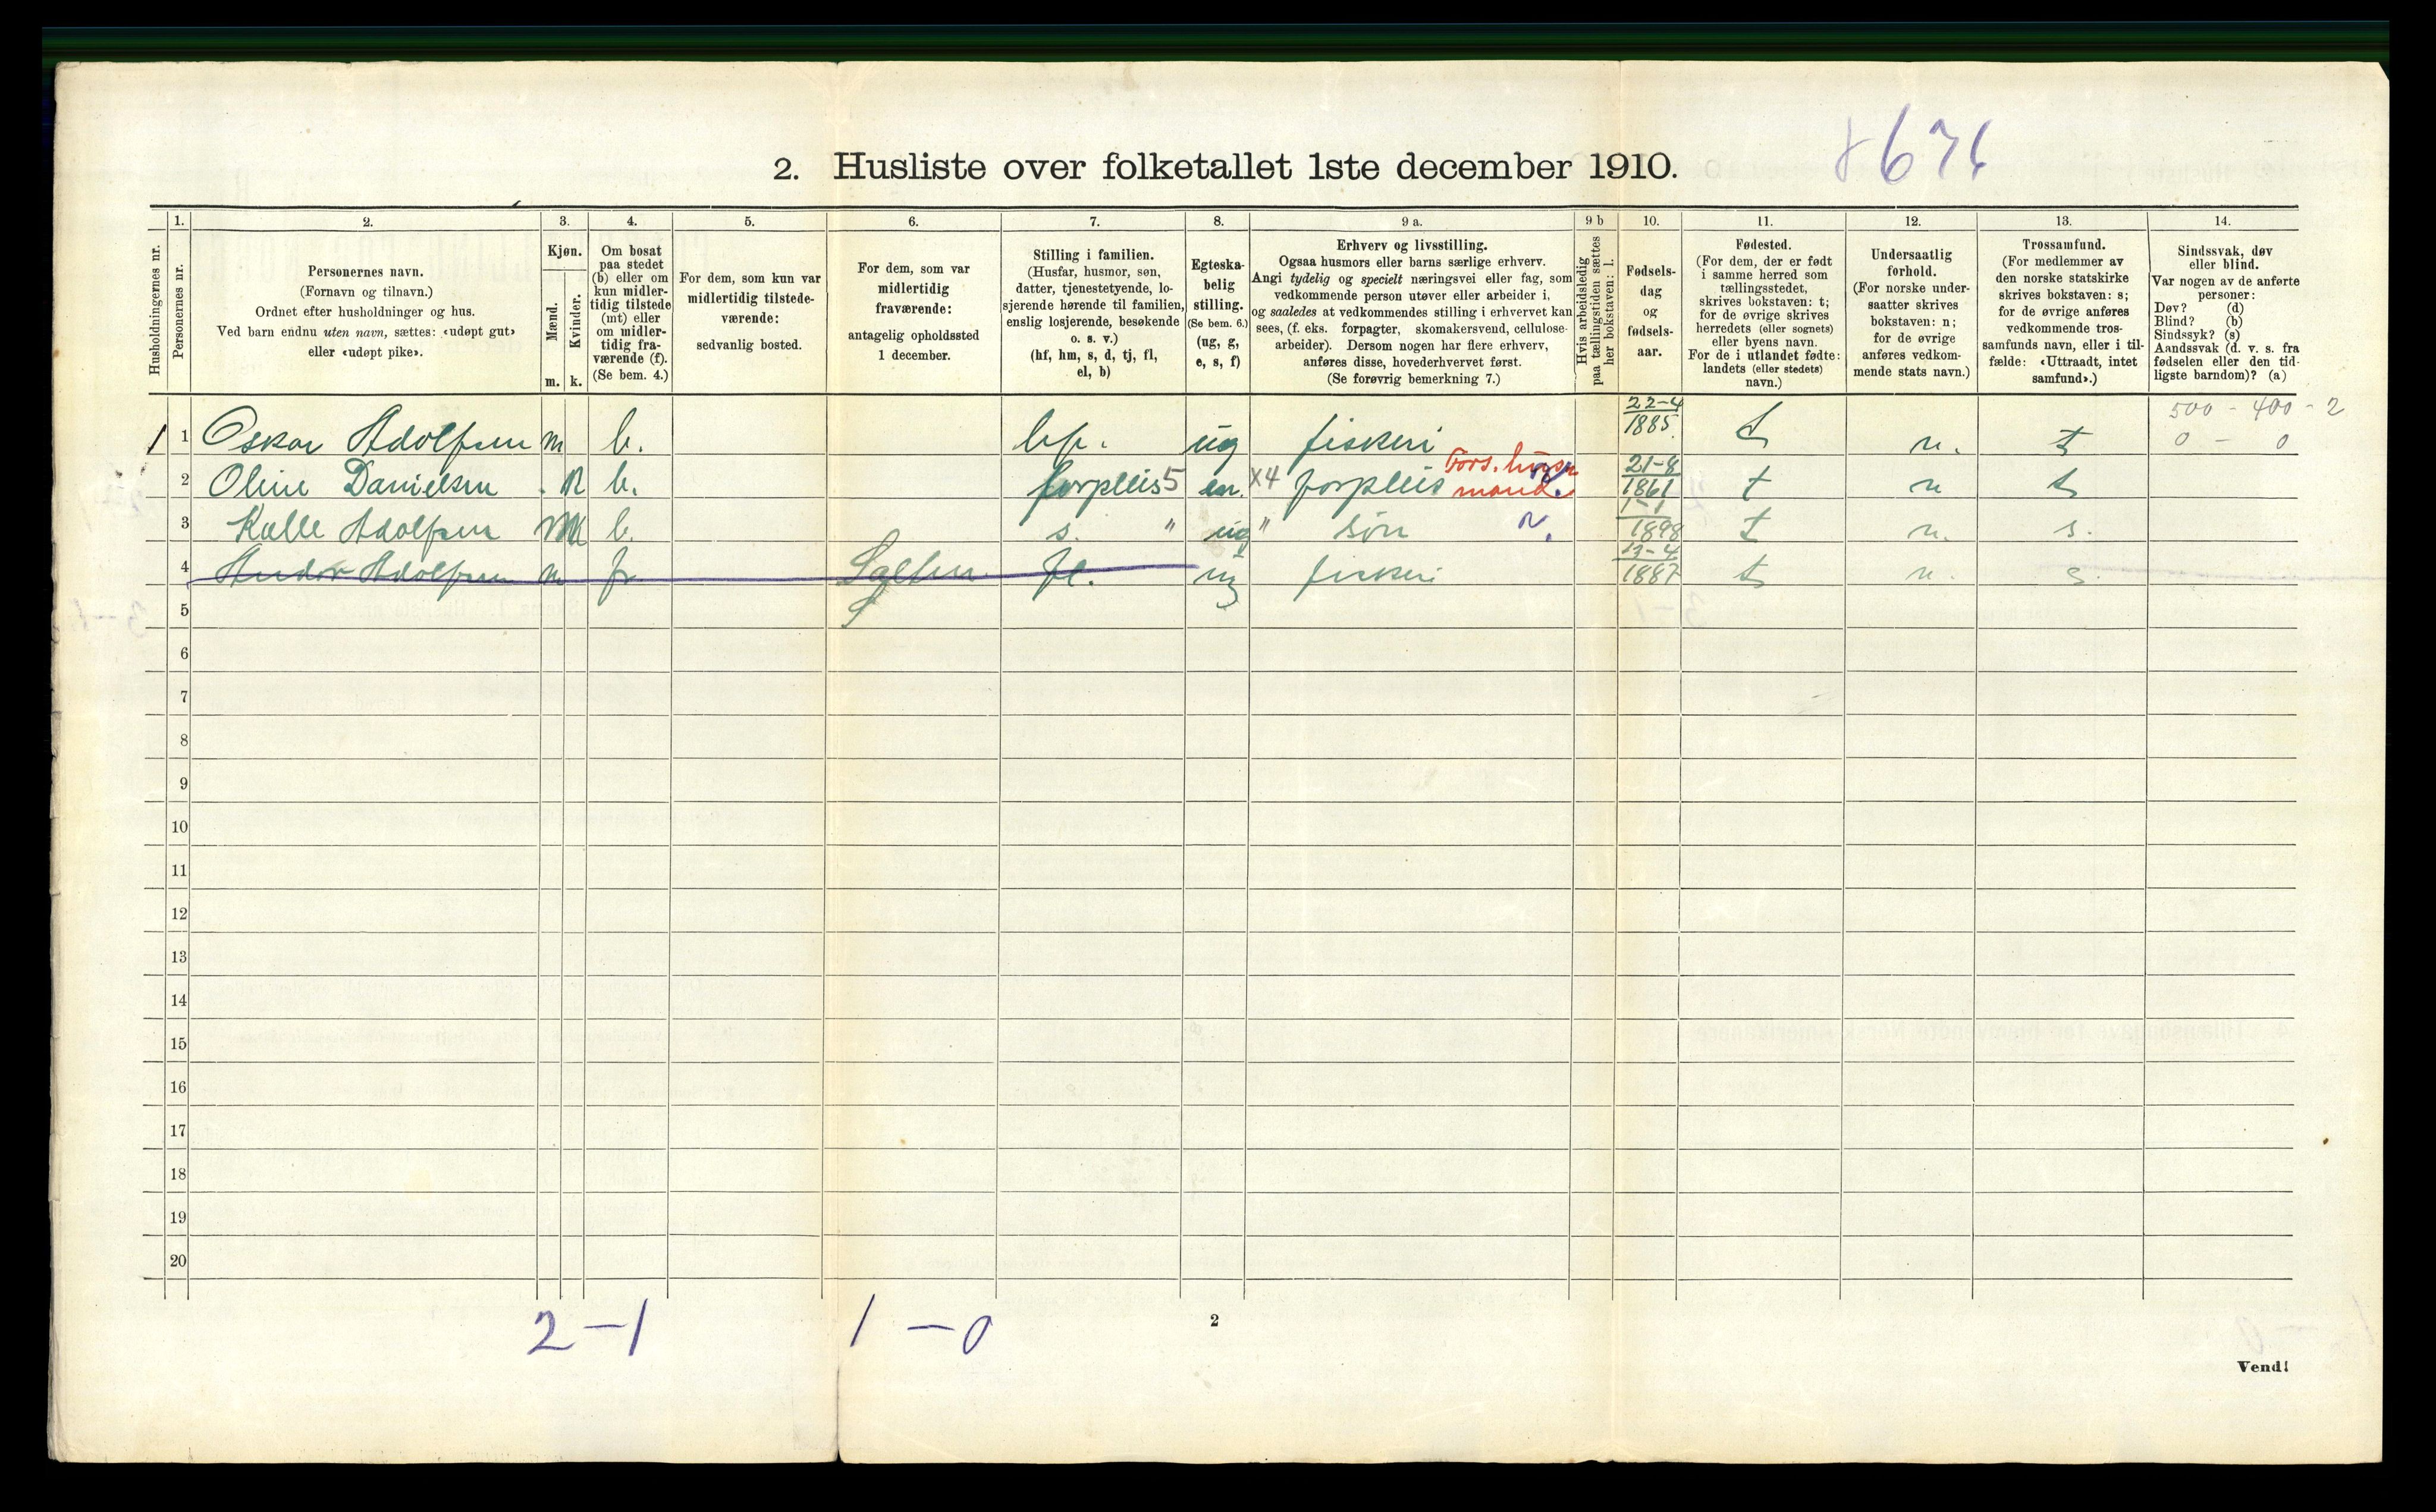 2. Husliste over folketallet 1ste december 1910.
Husholdningernes nr.
1.
Personernes nr.
2.
Personernes navn.
(Fornavn og tilnavn.)
Ordnet efter husholdninger og hus.
Ved barn endnu uten navn, sættes: «udøpt gut»
eller «udøpt pike».
3.
Kjøn.
Mænd.
Kvinder.
m. k.
4.
Om bosat
paa stedet
(b) eller om
kun midler-
tidig tilstede
(mt) eller
om midler-
tidig fra-
værende (f).
(Se bem. 4.)
5.
For dem, som kun var
midlertidig tilstede-
værende:
sedvanlig bosted.
6.
For dem, som var
midlertidig
fraværende:
antagelig opholdssted
1 december.
7.
Stilling i familien.
(Husfar, husmor, søn,
datter, tjenestetyende, lo-
sjerende hørende til familien,
enslig losjerende, besøkende
o. s. v.)
(hf, hm, s, d, tj, fl,
el, b)
8.
Egteska-
belig
stilling.
(Se bem. 6.)
(ug, g,
e, s, f)
9 a.
Erhverv og livsstilling.
Ogsaa husmors eller barns særlige erhverv.
Angi tydelig og specielt næringsvei eller fag, som
vedkommende person utøver eller arbeider i,
og saaledes at vedkommendes stilling i erhvervet kan
sees, (f. eks. forpagter, skomakersvend, cellulose-
arbeider). Dersom nogen har flere erhverv,
anføres disse, hovederhvervet først.
(Se forøvrig bemerkning 7.)
9 b
Hvis arbeidsledig
paa tællingstiden sættes
her bokstaven: l.
10.
Fødsels-
dag
og
fødsels-
aar.
11.
Fødested.
(For dem, der er født
i samme herred som
tællingsstedet,
skrives bokstaven: t;
for de øvrige skrives
herredets (eller sognets)
eller byens navn.
For de i utlandet fødte:
landets (eller stedets)
navn.)
12.
Undersaatlig
forhold.
(For norske under-
saatter skrives
bokstaven: n;
for de øvrige
anføres vedkom-
mende stats navn.)
13.
Trossamfund.
(For medlemmer av
den norske statskirke
skrives bokstaven: s;
for de øvrige anføres
vedkommende tros-
samfunds navn, eller i til-
fælde: «Uttraadt, intet
samfund».)
14.
Sindssvak, døv
eller blind.
Var nogen av de anførte
personer:
Døv? (d)
Blind? (b)
Sindssyk? (s)
Aandssvak (d. v. s. fra
fødselen eller den tid-
ligste barndom)? (a)
500 - 400 - 2
1 1 Oskar Adolfsen m b. ug fiskeri 22-4 1885. t n. 0 - 0
2 Oline Danielsen k b. forpleis 5 en. X4 forpleis Fors. 21-8 1861 t n
3 Kalle Adolfsen b. s. " ug " søn 1-1 1898 t n. s.
4 Andor Adolfsen m fr Salten fl. ug fiskeri 13-4 1887 t n. s.
5
6
7
8
9
10
11
12
13
14
15
16
17
18
19
20
2 - 1 1 - 0
2
Vend!